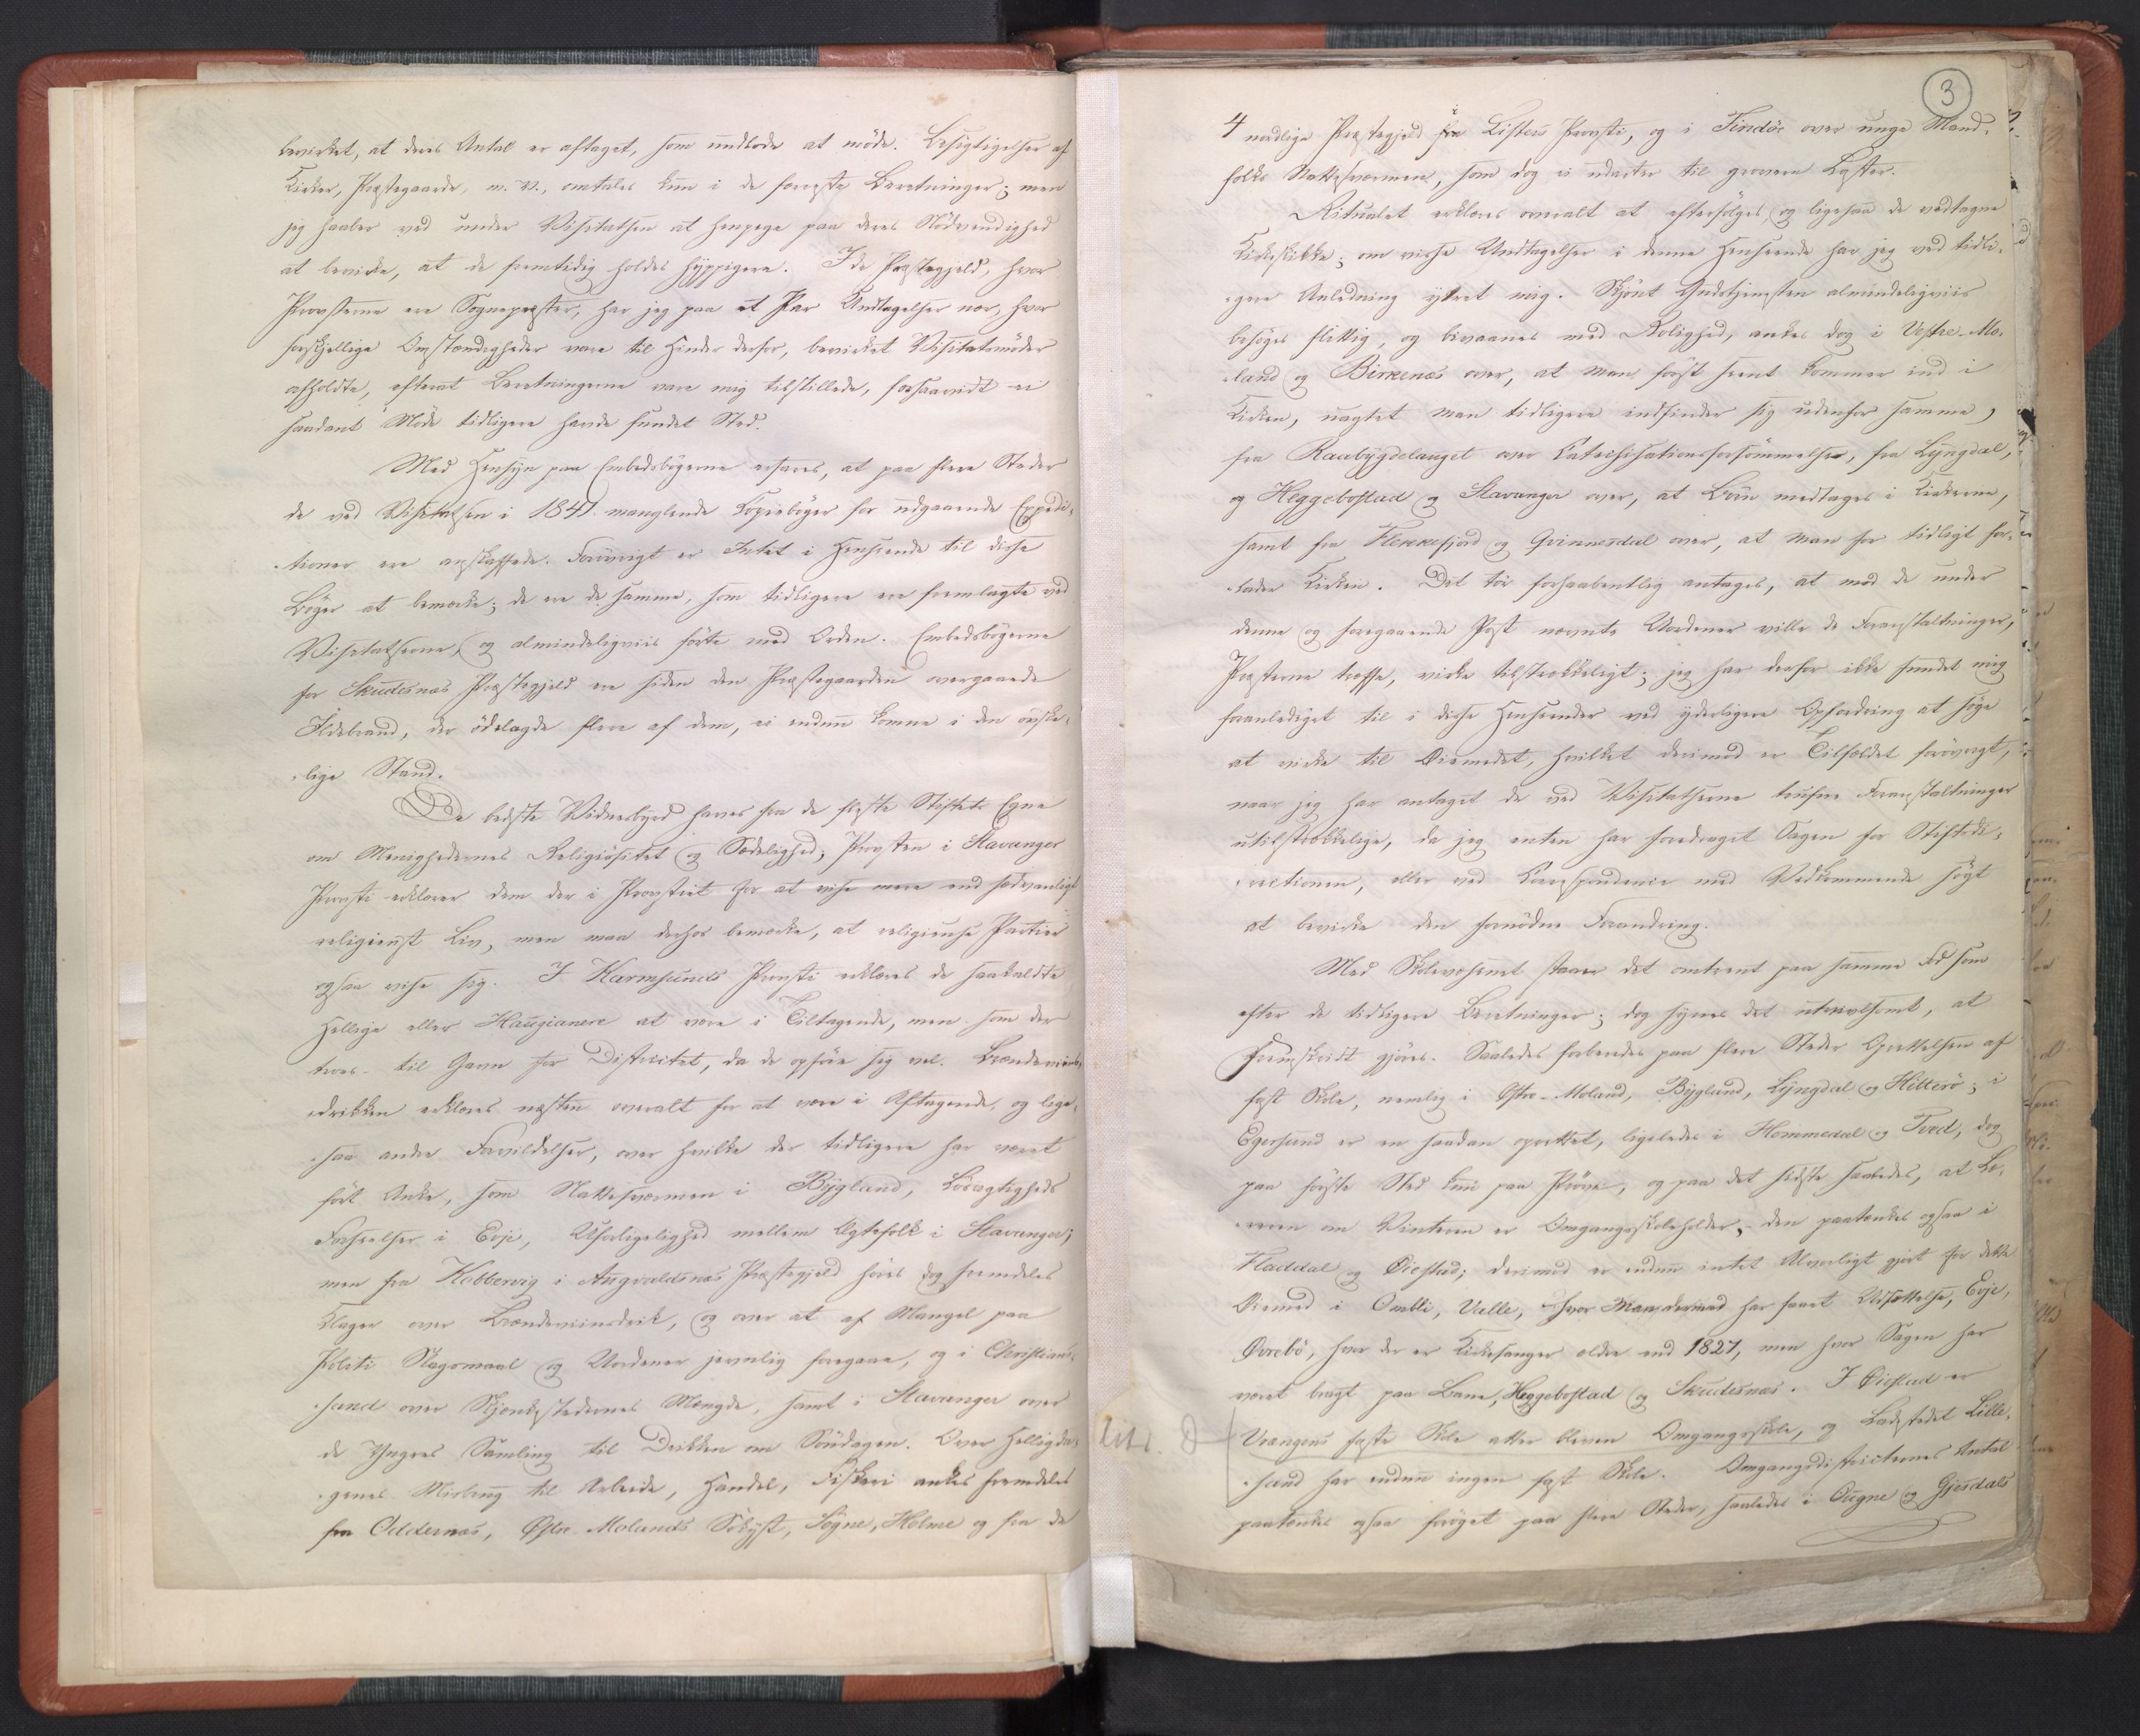 bevirket, at deres Antal er aftaget, som undlode at møde. Besigtigelser af
Kirker, Præstegaarde, m. V., omtales kun i de færreste Beretninger; men
jeg haaber ved under Visitatsen at henpege paa deres Nødvendighed
at bevirke, at de fremtidig holdes hyppigere. I de Præstegjeld, hvor
Provsterne ere Sognepræster, har jeg paa et Par Undtagelser nær, hvor
forskjellige Omstændigheder vare til Hinder derfor, bevirket Visitatsmøder
afholdte, efterat Beretningerne vare mig tilstillede, forsaavidt ei
saadant Møde tidligere havde fundet Sted.
Med Hensyn paa Embedsbøgerne erfares, at paa flere Steder
de ved Visitatsen i 1841 manglende Kopiebøger for udgaaende Expedi-
tioner ere anskaffede. Forøvrigt er Intet i Henseende til disse
Bøger at bemærke; de ere de samme, som tidligere ere fremlagte ved
Visitatserne, og almindeligviis førte med Orden. Embedsbøgerne
for Skudesnæs Præstegjeld ere siden den Præstegaarden overgaaede
Ildebrand, der ødelagde flere af dem, ei endnu komne i den ønske-
lige Stand.
De bedste Vidnesbyrd haves fra de fleste Stiftets Egne
om Menighedernes Religiøsitet og Sædelighed; Provsten i Stavanger
Provsti erklærer dem der i Provstiet for at vise mere end sædvanligt
religieust Liv, men maa derhos bemærke, at religieuse Partier
ogsaa vise sig. I Karmsunds Provsti erklæres de saakaldte
Hellige eller Haugianere at være i Tiltagende, men som der
troes til Gavn for Districtet, da de opføre sig vel. Brændeviins-
drikken erklæres næsten overalt for at være i Aftagende, og lige-
saa andre Forvildelser, over hvilke der tidligere har været
ført Anke, som Nattesværmen i Bygland, Løsagtigheds
Forseelser i Evje, Uforligelighed mellem Ægtefolk i Stavanger;
men fra Kobbervig i Augvaldsnæs Præstegjeld høres dog fremdeles
Klager over Brændeviinsdrik, og over at af Mangel paa
Politi Slagsmaal og Uordener jevnlig foregaae, og i Christian-
sand over Skjænkestedernes Mængde, samt i Stavanger over
de Yngres Samling til Drikken om Søndagen. Over Helligda-
genes Misbrug til Arbeide, Handel, Fiskeri ankes fremdeles
fra Oddernæs, Østre-Molands Søkyst, Søgne, Holme og fra de
3
4 nordlige Præstegjeld fra Listers Provsti, og i Tindöe over unge Mand-
folks Nattesværmen, som dog ei udarter til grovere Lyster.
Ritualet erklæres overalt at efterfølges, og ligesaa de vedtagne
Kirkeskikke; om visse Undtagelser i denne Henseende har jeg ved tidli-
gere Anledning ytret mig. Skjønt Gudstjenesten almindeligviis
besøges flittig, og bivaanes med Rolighed, ankes dog i Vestre-Mo-
land og Birkenæs over, at man først seent kommer ind i
Kirken, uagtet man tidligere indfinder sig udenfor samme,
fra Raabygdelauget over Catechisationsforsømmelser, fra Lyngdal,
og Heggebostad og Stavanger over, at Børn medtages i Kirkerne,
samt fra Flekkefjord og Qvinnesdal over, at man for tidligt for-
lader Kirken. Det tør forhaabentlig antages, at mod de under
denne og foregaaende Post nævnte Uordener ville de Foranstaltninger,
Præsterne træffe, virke tilstrækkeligt; jeg har derfor ikke fundet mig
foranlediget til i disse Henseender ved yderligere Opfordring at søge
at virke til Øiemedet, hvilket derimod er Tilfældet forøvrigt,
naar jeg har antaget de ved Visitatserne trufne Foranstaltninger
utilstrækkelige, da jeg enten har foredraget Sagen for Stiftsdi-
rectionen, eller ved Correspondence med Vedkommende søgt
at bevirke den fornødne Forandring.
Med Skolevæsenet staaer det omtrent paa samme Fod som
efter de tidligere Beretninger; dog synes det utvivlsomt, at
Fremskridt gjøres. Saaledes forberedes paa flere Steder Oprettelsen af
fast Skole, nemlig i Østre-Moland, Bygland, Lyngdal og Hitterö; i
Egersund er en saadan oprettet, ligeledes i Hommedal og Tved, dog
paa første Sted kun paa Prøve, og paa det sidste saaledes, at Læ-
reren om Vinteren er Omgangsskoleholder; den paatænkes ogsaa i
Fladdal og Øiestad; derimod er endnu intet Alvorligt gjort for dette
Øiemed i Omli, Valle, hvor Man derimod har faaet Udsættelse, Evje,
Øvrebö, hvor der er Kirkesanger ældre end 1827, men hvor Sagen har
været bragt paa Bane, Heggebostad og Skudesnæs. I Øiestad er
Vrængens faste Skole atter bleven Omgangsskole, og Ladestedet Lille-
sand har endnu ingen fast Skole. Omgangsdistricternes Antal
paatænkes ogsaa forøget paa flere Steder, saaledes i Ougne og Gjesdals
Litr. d